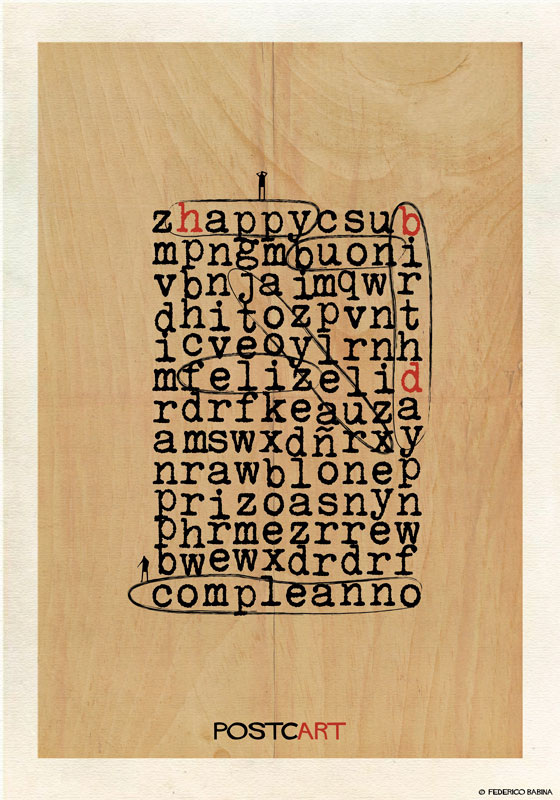 zhappycsub
mpngmbuoni
vbnjaimqwr
dhitozpvnt
icveoylrnh
mfelizelid
rdrfkeauza
amswxdñrxy
nrawblonep
prizoasnyn
phrmezrrew
bwewxdrdrf
compleanno
POSTCART
© FEDERICO BABINA